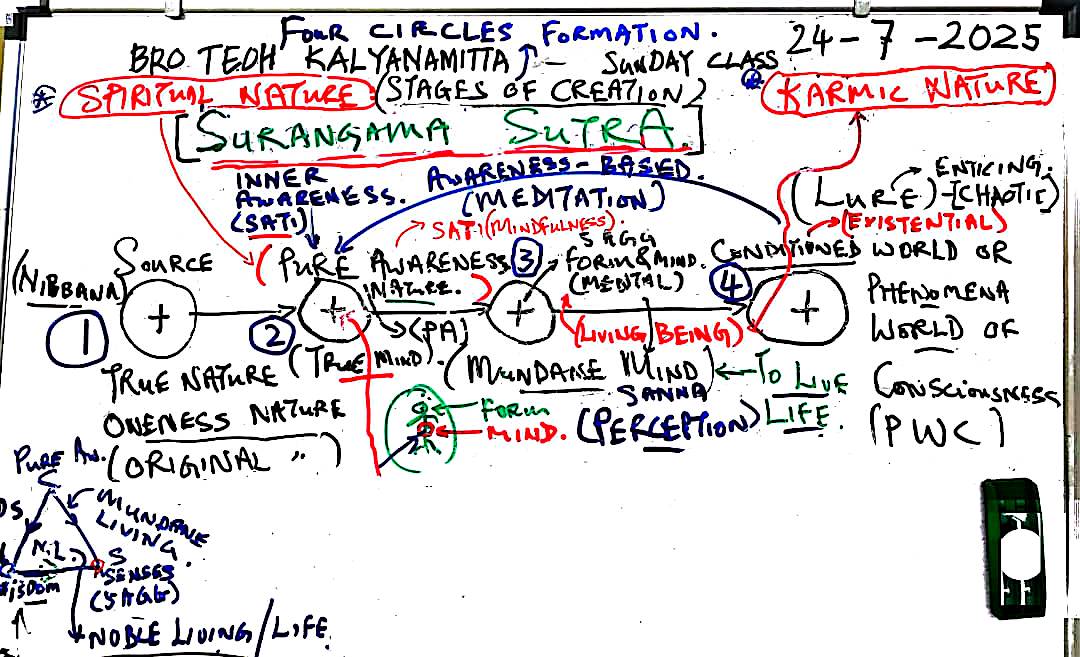 FOUR CIRCLES FORMATION.
24-7-2025
BRO TEOH KALYANAMITTA - SUNDAY CLASS
SPIRITUAL NATURE (STAGES OF CREATION)
KARMIC NATURE
[SURANGAMA SUTRA.]
INNER AWARENESS. (SATI)
AWARENESS-BASED.
(MEDITATION)
SATI (MINDFULNESS).
(LURE) → ENTICING.
[CHAOTIC]
(EXISTENTIAL)
(NIBBANA)
SOURCE
(PURE AWARENESS NATURE.)
3
5AGG
FORM & MIND.
(MENTAL)
CONDITIONED WORLD OR
PHENOMENA
WORLD OF
CONSCIOUSNESS
(PWC)
1
+
2
+
+
4
+
(PA)
(LIVING BEING)
TRUE NATURE
(TRUE MIND).
(MUNDANE MIND) ← TO LIVE
LIFE.
SANNA
(PERCEPTION)
ONENESS NATURE
(ORIGINAL " )
FORM
MIND.
PURE AW.
C
MUNDANE
LIVING.
N.L.
S
SENSES
(5AGG)
NOBLE LIVING/LIFE